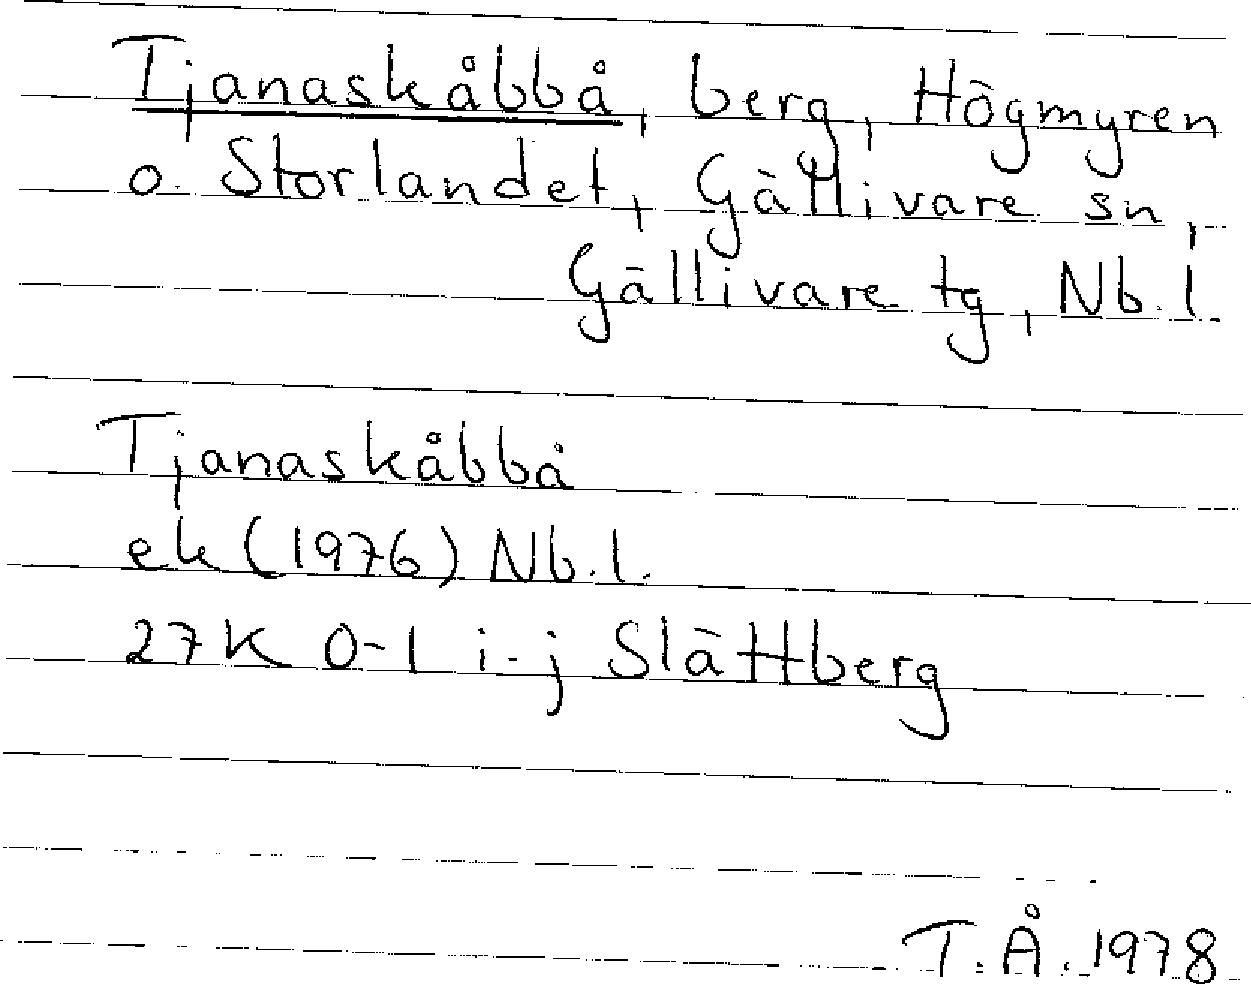 Tjanaskåbbå, berg, Högmyren
o. Storlandet, Gällivare sn,
Gällivare tg, Nb.l.
Tjanaskåbbå
ek (1976) Nb.l.
27K 0-1 i-j Slättberg
T.Å. 1978